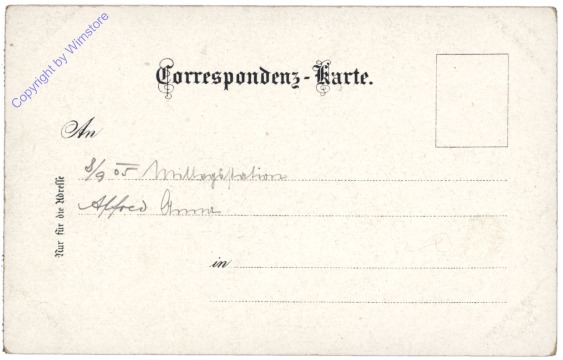 Copyright by Wimstore
Correspondenz-Karte.
An
8/9 05 Mittagsstation
Alfred Anna
Nur für die Adresse
in